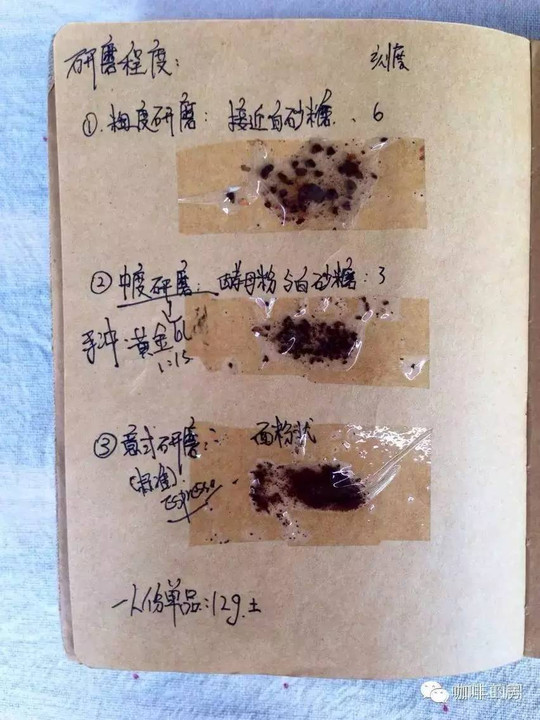 研磨程度: 刻度
① 粗度研磨: 接近白砂糖. 6
② 中度研磨: 酵母粉与白砂糖: 3
手冲: 黄金比
1:15
③ 意式研磨: 面粉状
(标准)
一人份单品: 12g.±
咖啡工房